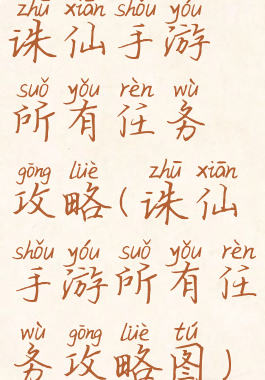 zhū xiān shǒu yóu
诛仙手游
suǒ yǒu rèn wù
所有任务
gōng lüè zhū xiān
攻略(诛仙
shǒu yóu suǒ yǒu rèn
手游所有任
wù gōng lüè tú
务攻略图)